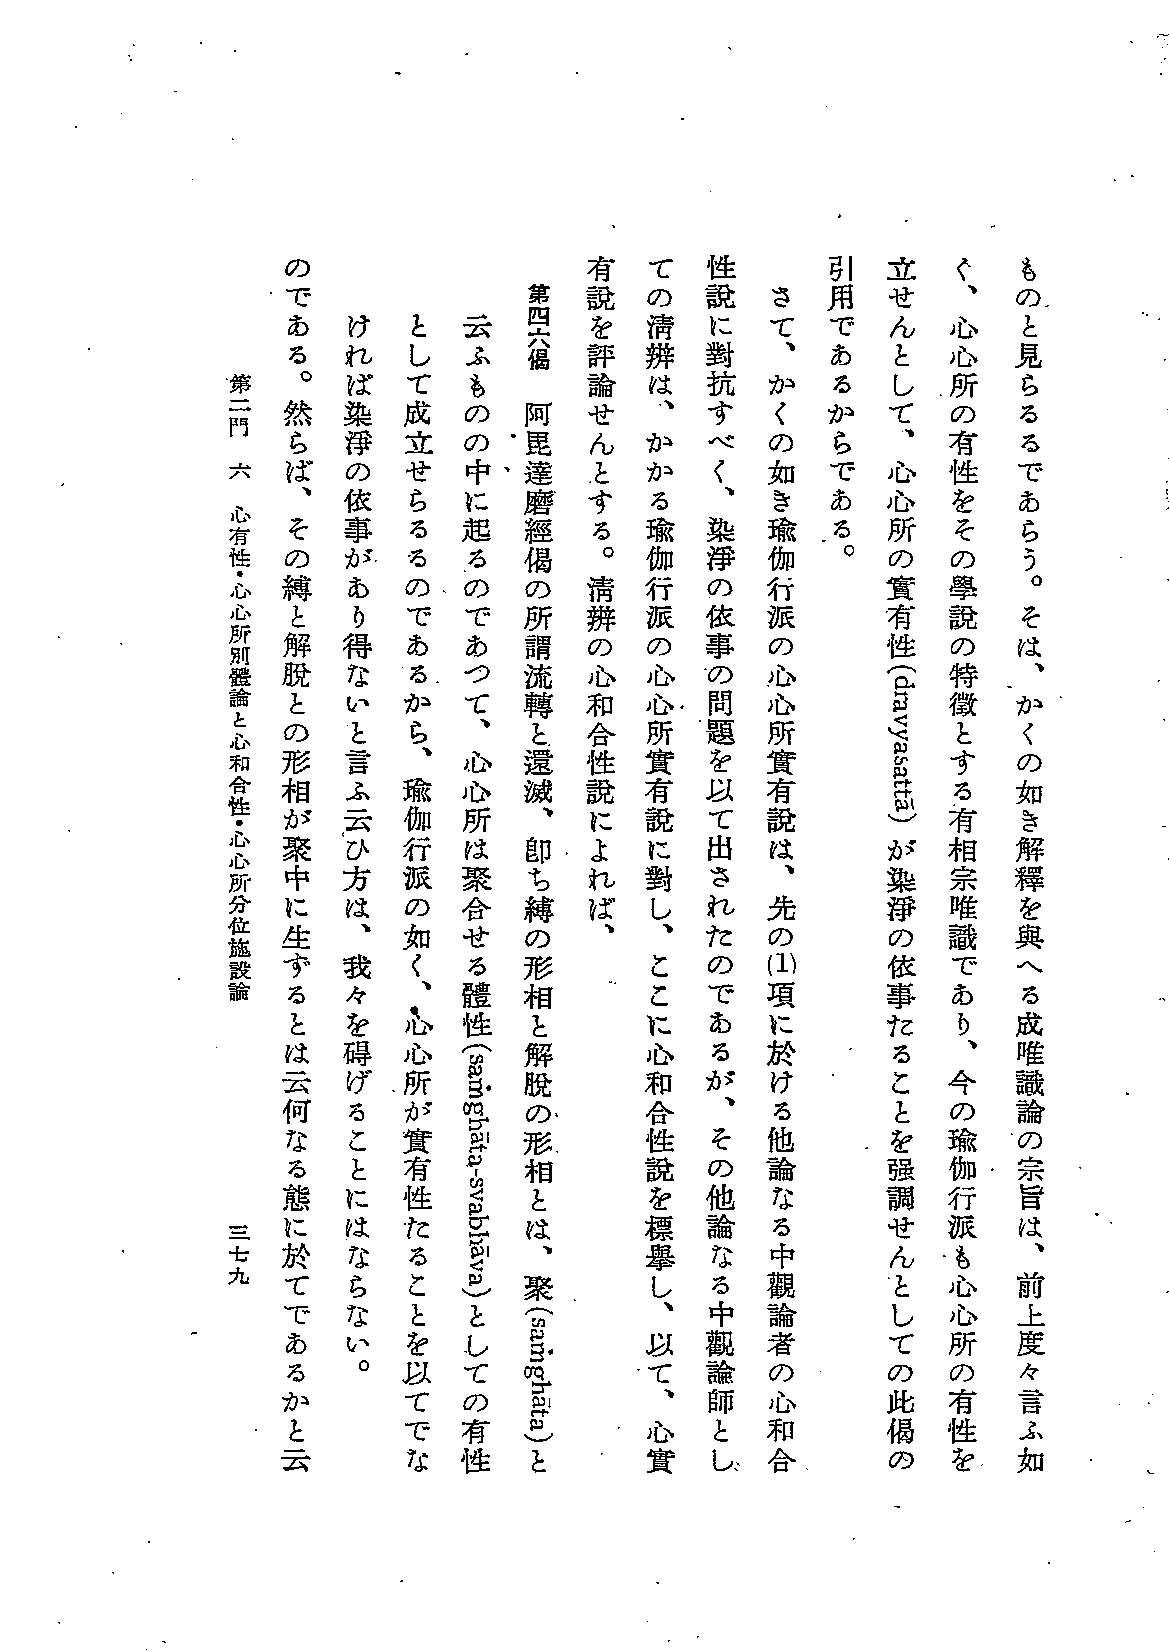 ものと見らるるであらう。そは、かくの如き解釋を與へる成唯識論の宗旨は、前上度々言ふ如
く、心心所の有性をその學說の特徵とする有相宗唯識であり、今の瑜伽行派も心心所の有性を
立せんとして、心心所の實有性(dravyasattā)が染淨の依事たることを强調せんとしての此偈の
引用であるからである。
さて、かくの如き瑜伽行派の心心所實有說は、先の(1)項に於ける他論なる中觀論者の心和合
性說に對抗すべく、染淨の依事の問題を以て出されたのであるが、その他論なる中觀論師とし
ての淸辨は、かかる瑜伽行派の心心所實有說に對し、ここに心和合性說を標擧し、以て、心實
有說を評論せんとする。淸辨の心和合性說によれば、
第四六偈 阿毘達磨經偈の所謂流轉と還滅、卽ち縛の形相と解脫の形相とは、聚(saṁghāta)と
云ふものの中に起るのであつて、心心所は聚合せる體性(saṁghāta-svabhāva)としての有性
として成立せらるるのであるから、瑜伽行派の如く、心心所が實有性たることを以てでな
ければ染淨の依事があり得ないと言ふ云ひ方は、我々を碍げることにはならない。
のである。然らば、その縛と解脫との形相が聚中に生ずるとは云何なる態に於てであるかと云
第二門 六 心有性・心心所別體論と心和合性・心心所分位施設論
三七九